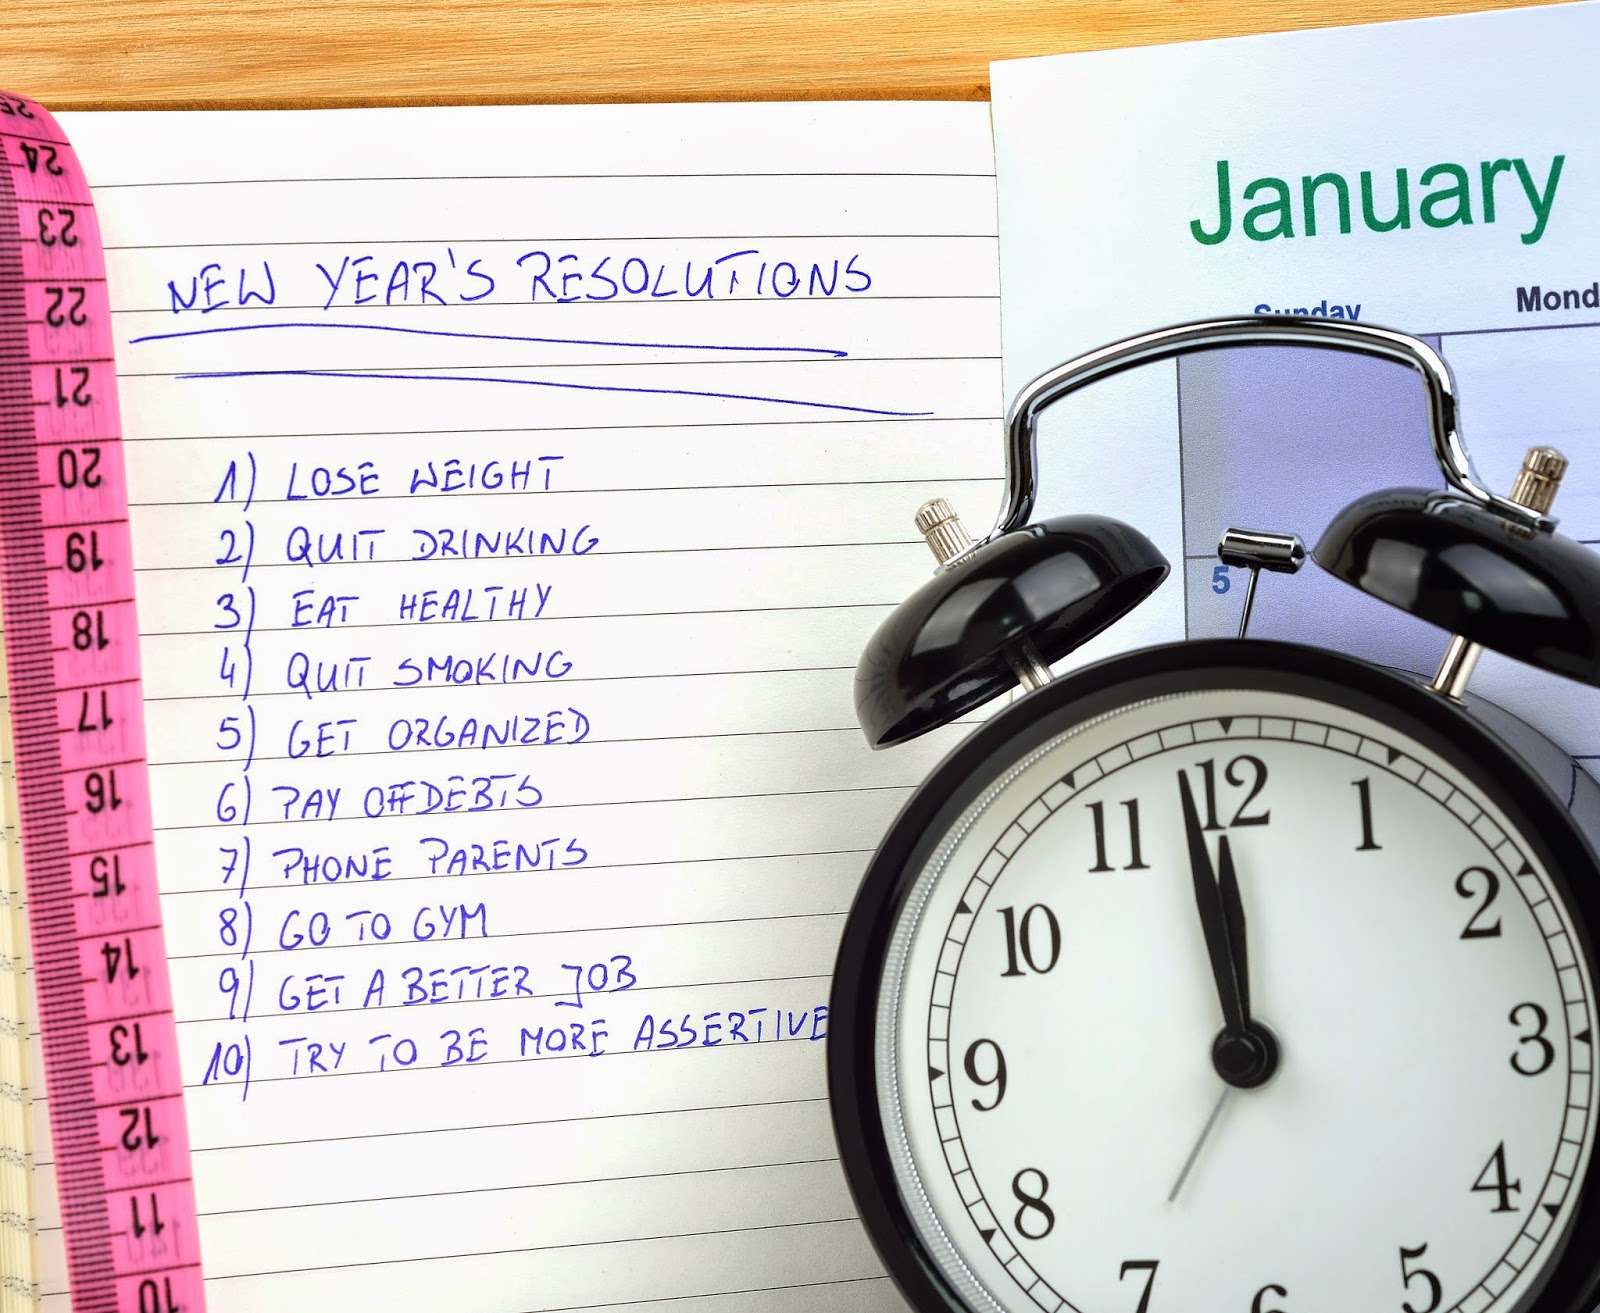 NEW YEAR'S RESOLUTIONS
1) LOSE WEIGHT
2) QUIT DRINKING
3) EAT HEALTHY
4) QUIT SMOKING
5) GET ORGANIZED
6) PAY OFF DEBTS
7) PHONE PARENTS
8) GO TO GYM
9) GET A BETTER JOB
10) TRY TO BE MORE ASSERTIVE
January
Sunday Mond
5
12
11 1
10 2
9 3
8 4
7 6 5
25
24
23
22
21
20
19
18
17
16
15
14
13
12
11
10